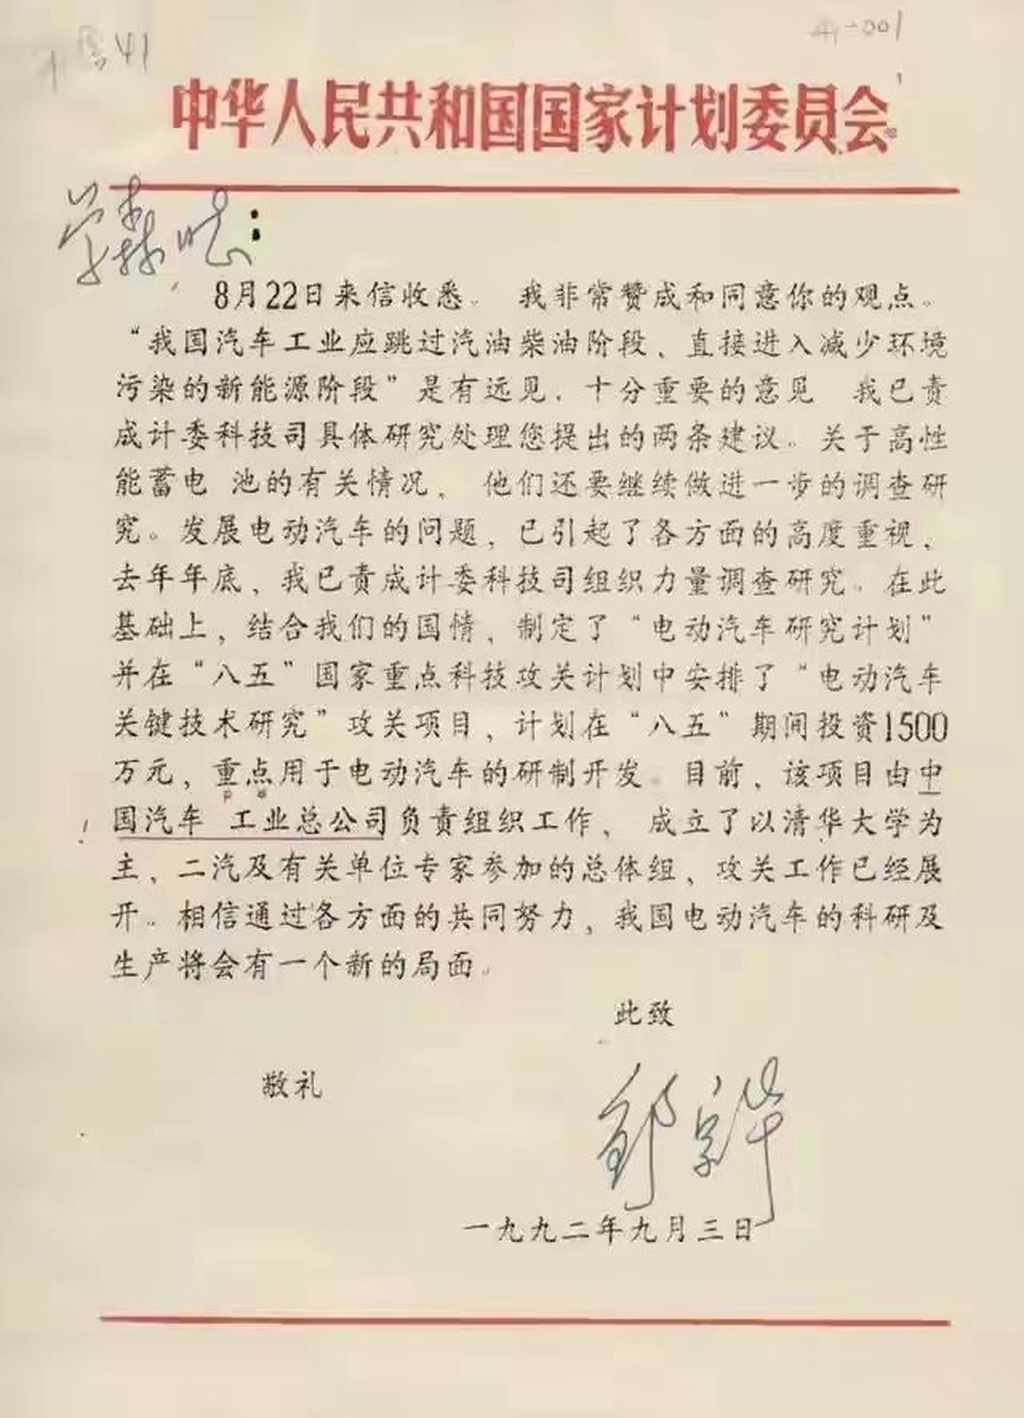 41
41-001
中华人民共和国国家计划委员会
学森兄：
8月22日来信收悉。 我非常赞成和同意你的观点。
“我国汽车工业应跳过汽油柴油阶段、直接进入减少环境
污染的新能源阶段”是有远见、十分重要的意见 我已责
成计委科技司具体研究处理您提出的两条建议。关于高性
能蓄电 池的有关情况、 他们还要继续做进一步的调查研
究。发展电动汽车的问题、已引起了各方面的高度重视、
去年年底、我已责成计委科技司组织力量调查研究。在此
基础上、结合我们的国情、制定了“电动汽车研究计划”
并在“八五”国家重点科技攻关计划中安排了“电动汽车
关键技术研究”攻关项目、计划在“八五”期间投资1500
万元、重点用于电动汽车的研制开发。目前、该项目由中
国汽车 工业总公司负责组织工作、 成立了以清华大学为
主、二汽及有关单位专家参加的总体组、攻关工作已经展
开。相信通过各方面的共同努力、我国电动汽车的科研及
生产将会有一个新的局面。
此致
敬礼
邹家华
一九九二年九月三日